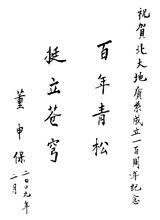 祝贺北大地质系成立一百周年纪念
百年青松
挺立苍穹
董申保
二〇〇九年
二月